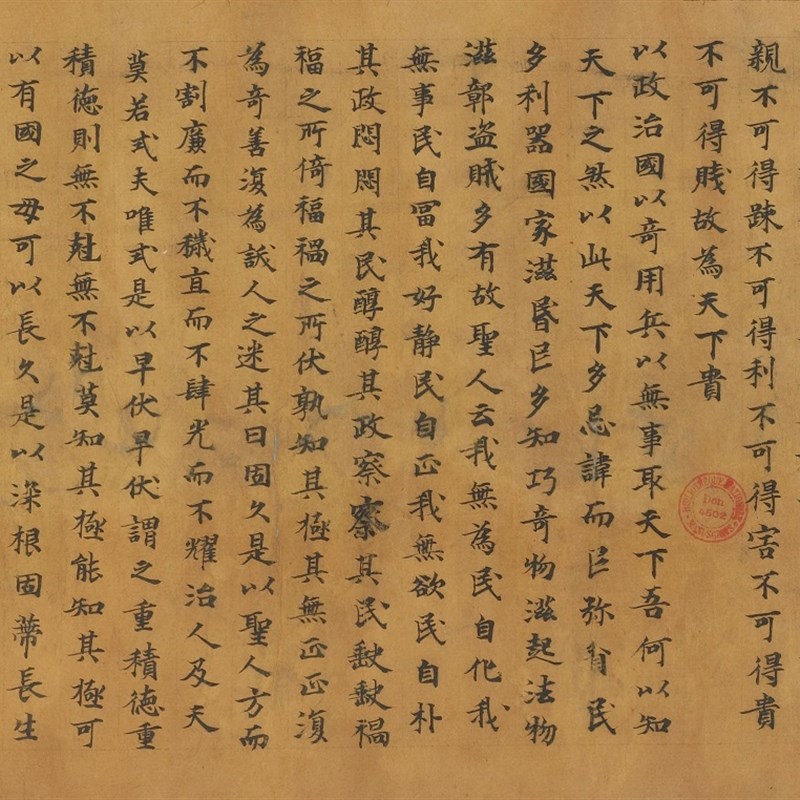 親不可得踈不可得利不可得害不可得貴
不可得賤故為天下貴
以政治國以奇用兵以無事取天下吾何以知
天下之然以此天下多忌諱而民弥貧民
多利器國家滋昏民多知巧奇物滋起法物
滋彰盗賊多有故聖人云我無為民自化我
無事民自冨我好静民自正我無欲民自朴
其政悶悶其民醇醇其政察察其民缺缺禍
福之所倚福禍之所伏孰知其極其無正正復
為奇善復為訞人之迷其日固久是以聖人方而
不割廉而不穢直而不肆光而不耀治人及天
莫若式夫唯式是以早伏早伏謂之重積德重
積德則無不尅無不尅莫知其極能知其極可
以有國之母可以長久是以深根固蔕長生
Don
4502